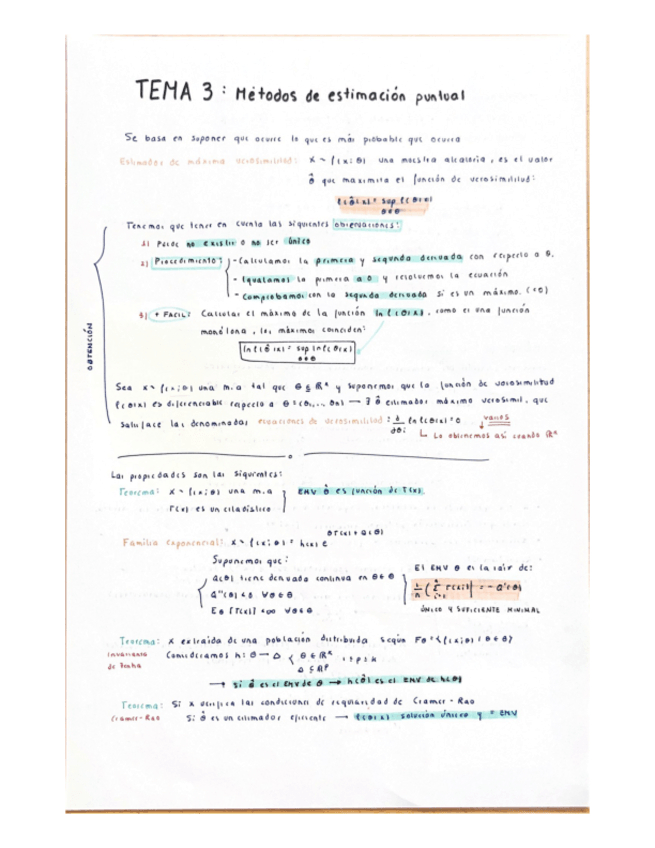 TEMA 3: Métodos de estimación puntual
Se basa en suponer que ocurre lo que es más probable que ocurra
Estimador de máxima verosimilitud: X ~ f(x;θ) una muestra aleatoria, es el valor
θ̂ que maximiza el función de verosimilitud:
ℓ(θ̂|x) = sup ℓ(θ|x)
θ∈Θ
Tenemos que tener en cuenta las siguientes observaciones:
1) Puede no existir o no ser único
2) Procedimiento: - Calculamos la primera y segunda derivada con respecto a θ.
- Igualamos la primera a 0 y resolvemos la ecuación
- Comprobamos con la segunda derivada si es un máximo. (<0)
3) + FACIL: Calcular el máximo de la función ln ℓ(θ|x), como es una función
monótona, los máximos coinciden:
ln ℓ(θ̂|x) = sup ln ℓ(θ|x)
θ∈Θ
OBTENCIÓN
Sea X ~ f(x;θ) una m.a tal que Θ ⊆ ℝᵏ y suponemos que la función de verosimilitud
ℓ(θ|x) es diferenciable respecto a θ = (θ₁,..., θₙ) → ∃ θ̂ estimador máximo verosímil, que
satisface las denominadas ecuaciones de verosimilitud: ∂/∂θᵢ ln ℓ(θ|x) = 0 varios
↳ Lo obtenemos así cuando ℝᵏ
Las propiedades son las siguientes:
Teorema: X ~ f(x;θ) una m.a EMV θ̂ es función de T(x).
T(x) es un estadístico
Familia exponencial: X ~ f(x;θ) = h(x) e^θT(x) + Q(θ)
Suponemos que:
Q(θ) tiene derivada continua en θ ∈ Θ
Q''(θ) < 0 ∀θ∈Θ
Eθ [T(x)] < ∞ ∀θ∈Θ
El EMV θ es la raíz de:
1/n (Σ T(xi)) = -Q'(θ)
ÚNICO Y SUFICIENTE MINIMAL
Teorema: X extraída de una población distribuida según Fθ = {f(x;θ) | θ ∈ Θ}
Invarianza de Zehna
Consideramos h: Θ → Δ Θ ∈ ℝᵏ 1 ≤ p ≤ k
Δ ⊆ ℝᵖ
→ Si θ̂ es el EMV de θ → h(θ̂) es el EMV de h(θ)
Teorema: Si X verifica las condiciones de regularidad de Cramer-Rao
Cramer-Rao Si θ̂ es un estimador eficiente → ℓ(θ|x) solución única y = EMV